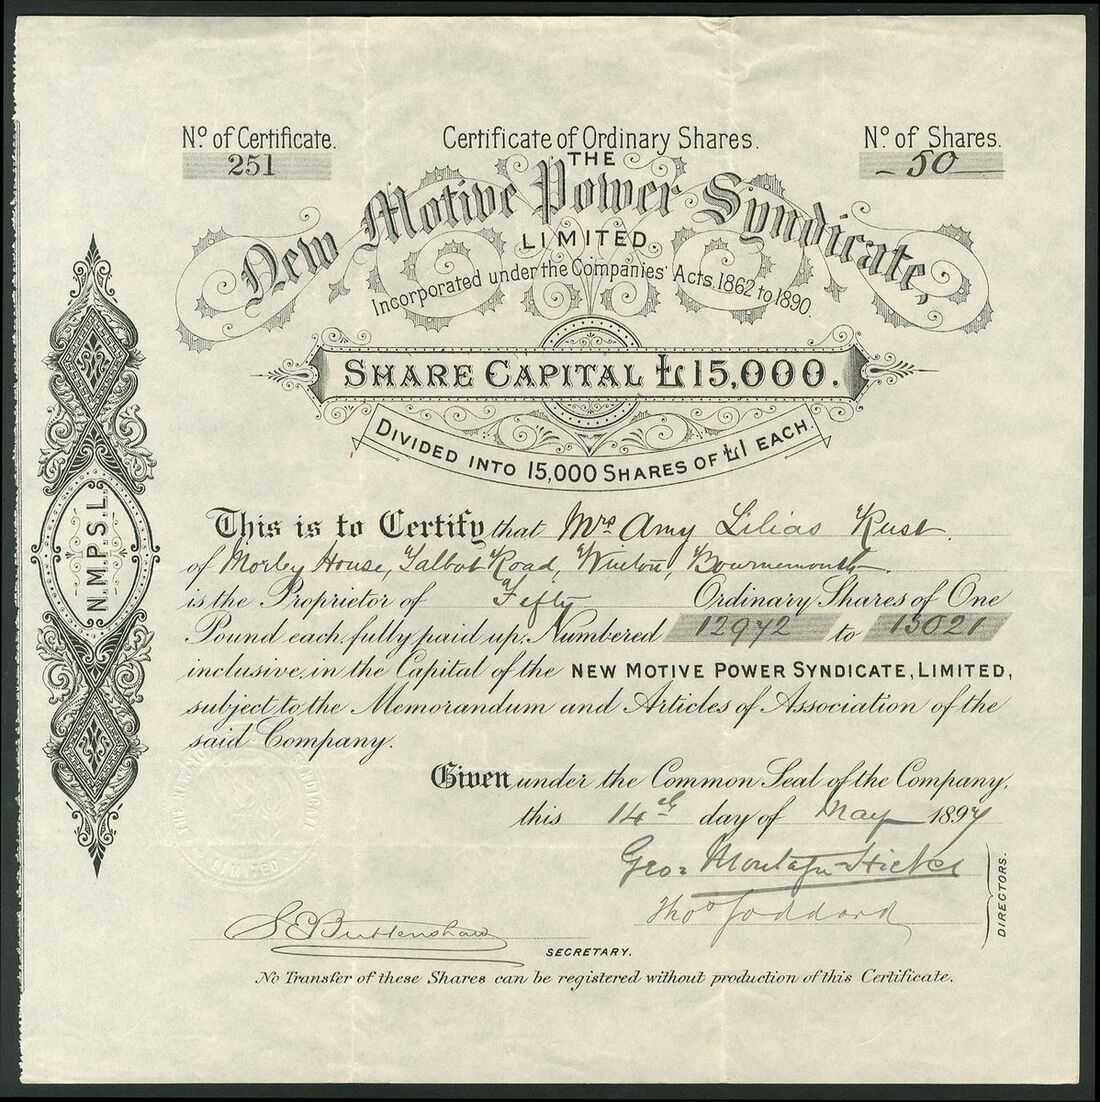 No. of Certificate.
251
Certificate of Ordinary Shares.
No. of Shares.
50
THE
New Motive Power Syndicate,
LIMITED.
Incorporated under the Companies' Acts, 1862 to 1890.
SHARE CAPITAL £15,000.
DIVIDED INTO 15,000 SHARES OF £1 EACH.
N.M.P.S.L.
This is to Certify that Mrs Amy Lilias Rust.
of Morley House, Talbot Road, Winton, Bournemouth.
is the Proprietor of Fifty Ordinary Shares of One
Pound each, fully paid up, Numbered 12972 to 13021
inclusive, in the Capital of the NEW MOTIVE POWER SYNDICATE, LIMITED,
subject to the Memorandum and Articles of Association of the
said Company.
Given under the Common Seal of the Company,
this 14th day of May 1897
Geo: Montagu Hicks
Thos Goddard
DIRECTORS.
S E Buttenshaw
SECRETARY.
No Transfer of these Shares can be registered without production of this Certificate.
LIMITED